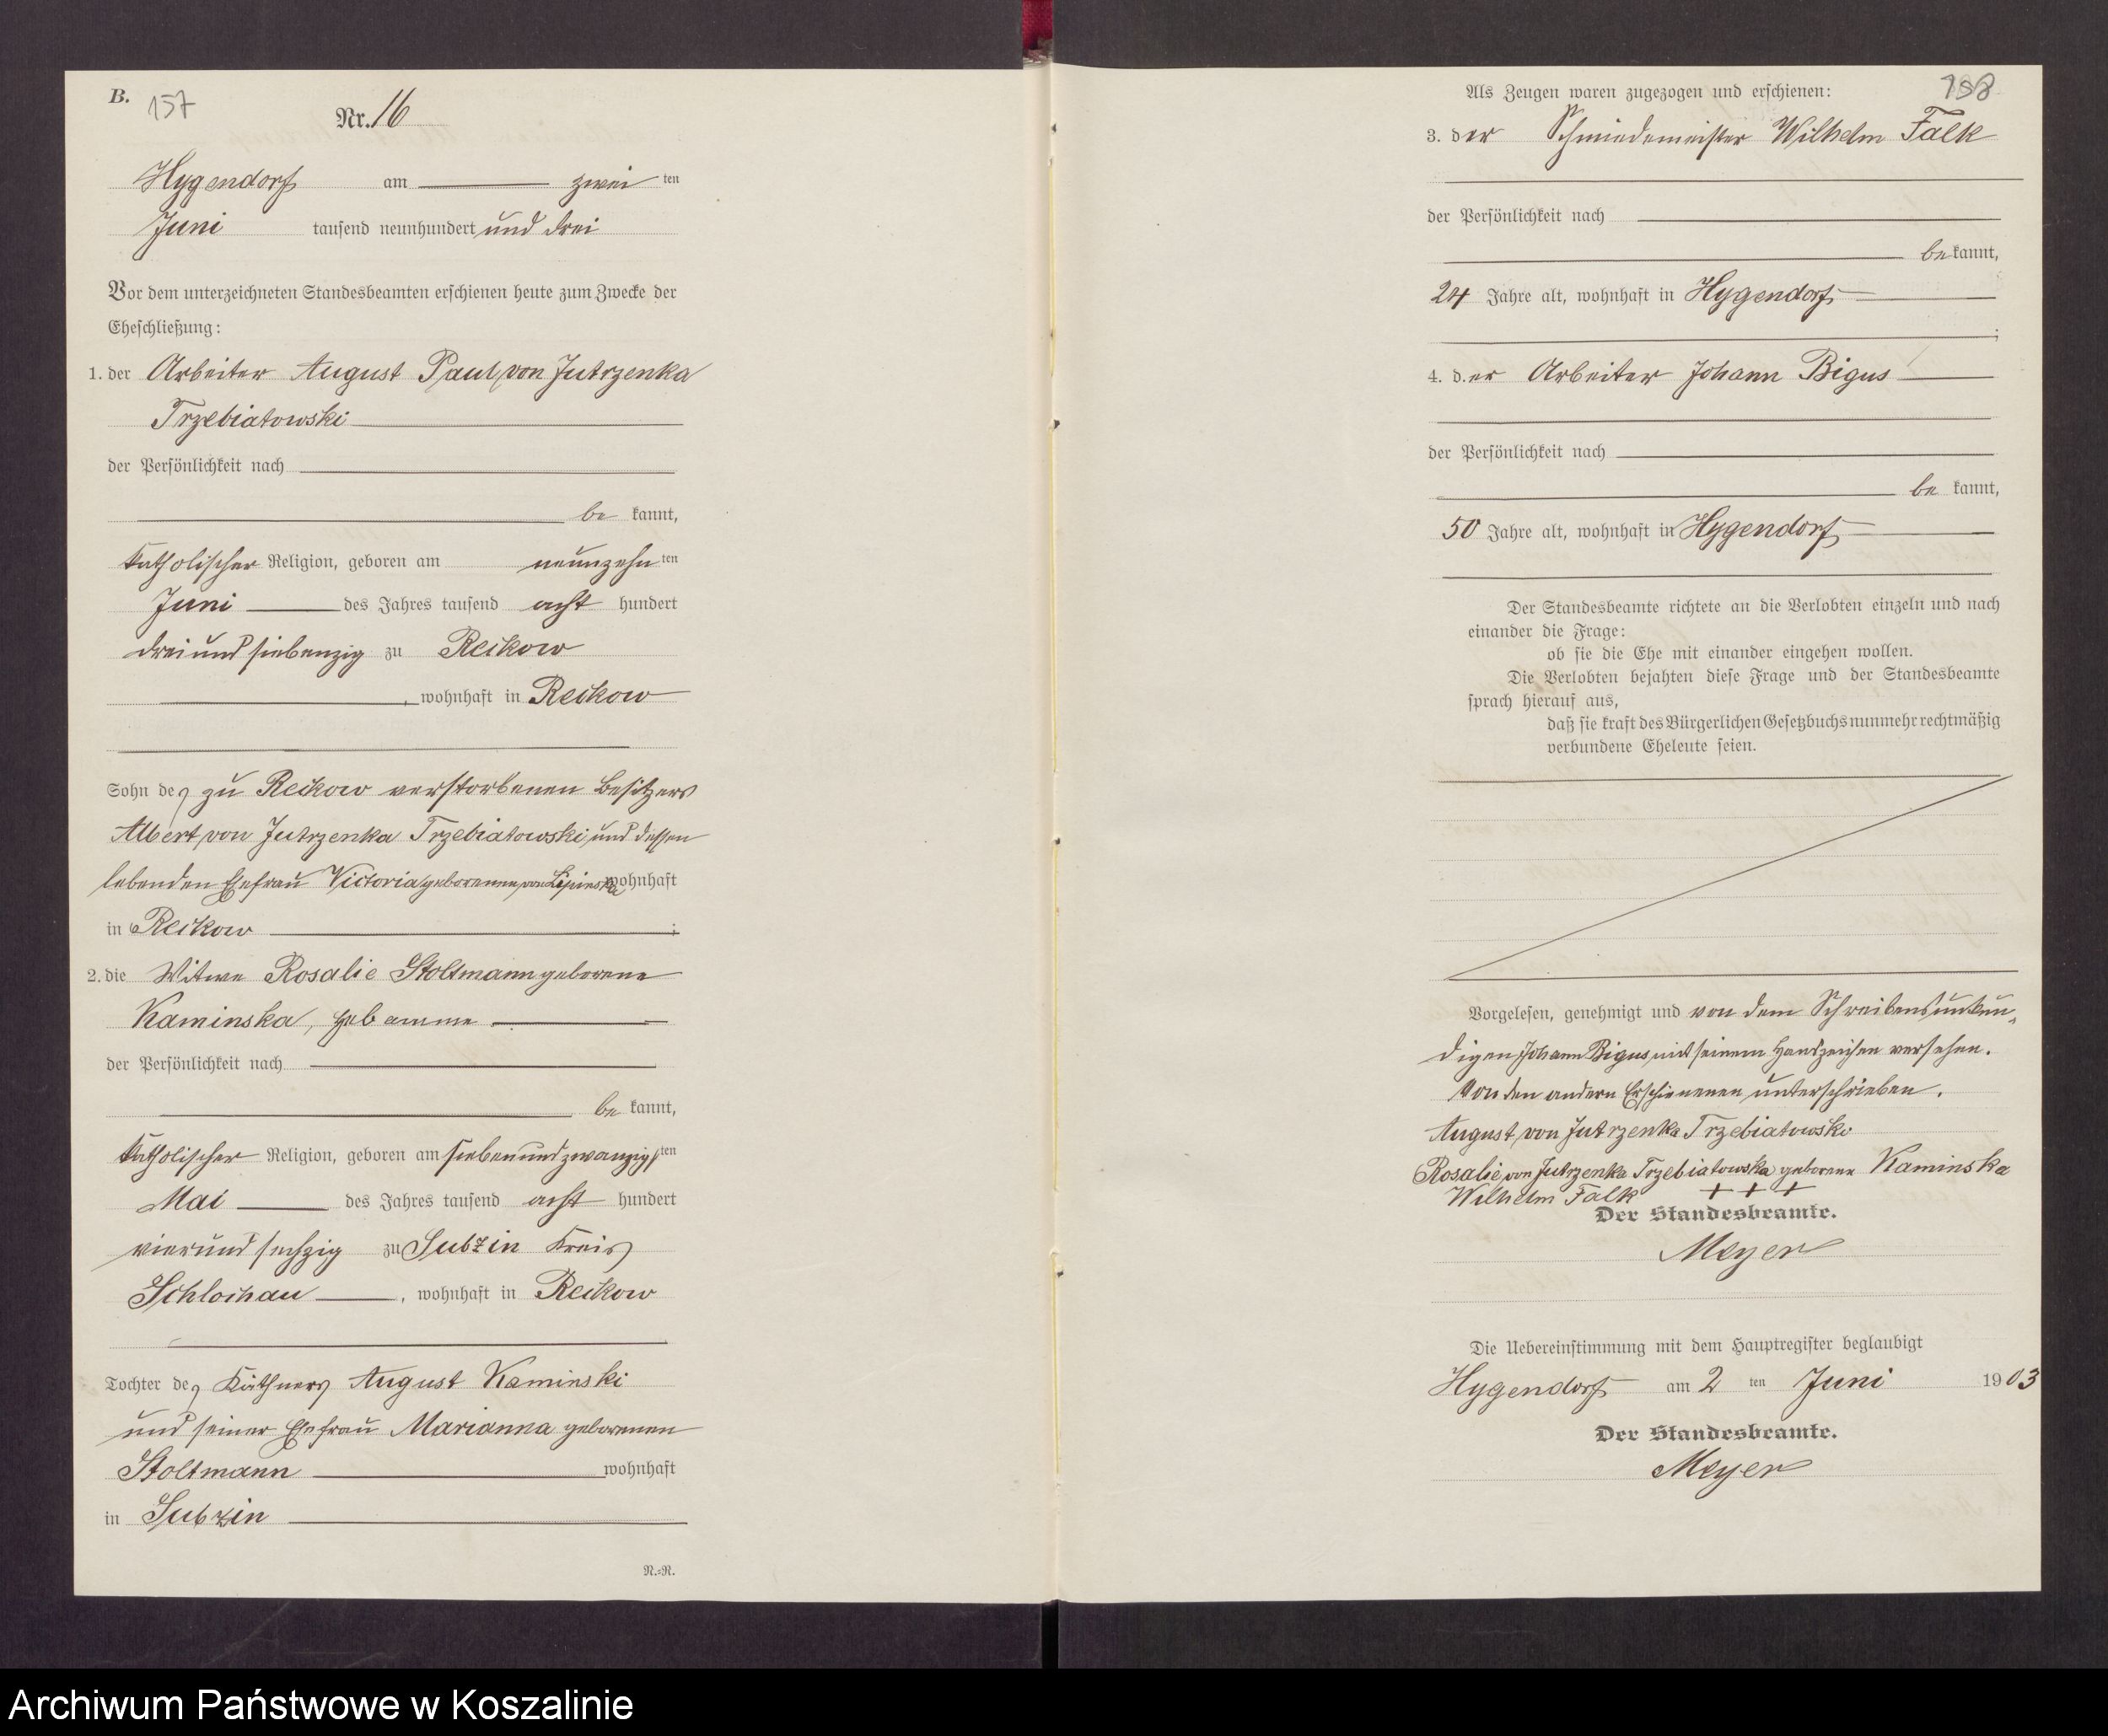 B.
157
Nr. 16
Hygendorf am zwei ten
Juni tausend neunhundert und drei
Vor dem unterzeichneten Standesbeamten erschienen heute zum Zwecke der
Eheschließung:
1. der Arbeiter August Paul von Jutrzenka
Trzebiatowski
der Persönlichkeit nach
be kannt,
katholischer Religion, geboren am neunzehn ten
Juni des Jahres tausend acht hundert
dreiundsiebenzig zu Reckow
, wohnhaft in Reckow
Sohn des zu Reckow verstorbenen Besitzers
Albert von Jutrzenka Trzebiatowski und dessen
lebenden Ehefrau Victoria geborenen von Lipinska wohnhaft
in Reckow ;
2. die Witwe Rosalie Stoltmann geborene
Kaminska, Hebamme
der Persönlichkeit nach
be kannt,
katholischer Religion, geboren am siebenundzwanzig ten
Mai des Jahres tausend acht hundert
vierundsechzig zu Subzin Kreis
Schlochau , wohnhaft in Reckow
Tochter des Käthners August Kaminski
und seiner Ehefrau Marianna geborenen
Stoltmann wohnhaft
in Subzin
N.-R.
Als Zeugen waren zugezogen und erschienen:
158
3. der Schmiedemeister Wilhelm Falk
der Persönlichkeit nach
be kannt,
24 Jahre alt, wohnhaft in Hygendorf
;
4. der Arbeiter Johann Bigus
der Persönlichkeit nach
be kannt,
50 Jahre alt, wohnhaft in Hygendorf
Der Standesbeamte richtete an die Verlobten einzeln und nach
einander die Frage:
ob sie die Ehe mit einander eingehen wollen.
Die Verlobten bejahten diese Frage und der Standesbeamte
sprach hierauf aus,
daß sie kraft des Bürgerlichen Gesetzbuchs nunmehr rechtmäßig
verbundene Eheleute seien.
Vorgelesen, genehmigt und von dem Schreibensunkun-
digen Johann Bigus mit seinem Handzeichen versehen.
Von den andern Erschienenen unterschrieben.
August von Jutrzenka Trzebiatowski
Rosalie von Jutrzenka Trzebiatowska geborene Kaminska
Wilhelm Falk + + +
Der Standesbeamte.
Meyer
Die Uebereinstimmung mit dem Hauptregister beglaubigt
Hygendorf am 2 ten Juni 1903
Der Standesbeamte.
Meyer
Archiwum Państwowe w Koszalinie